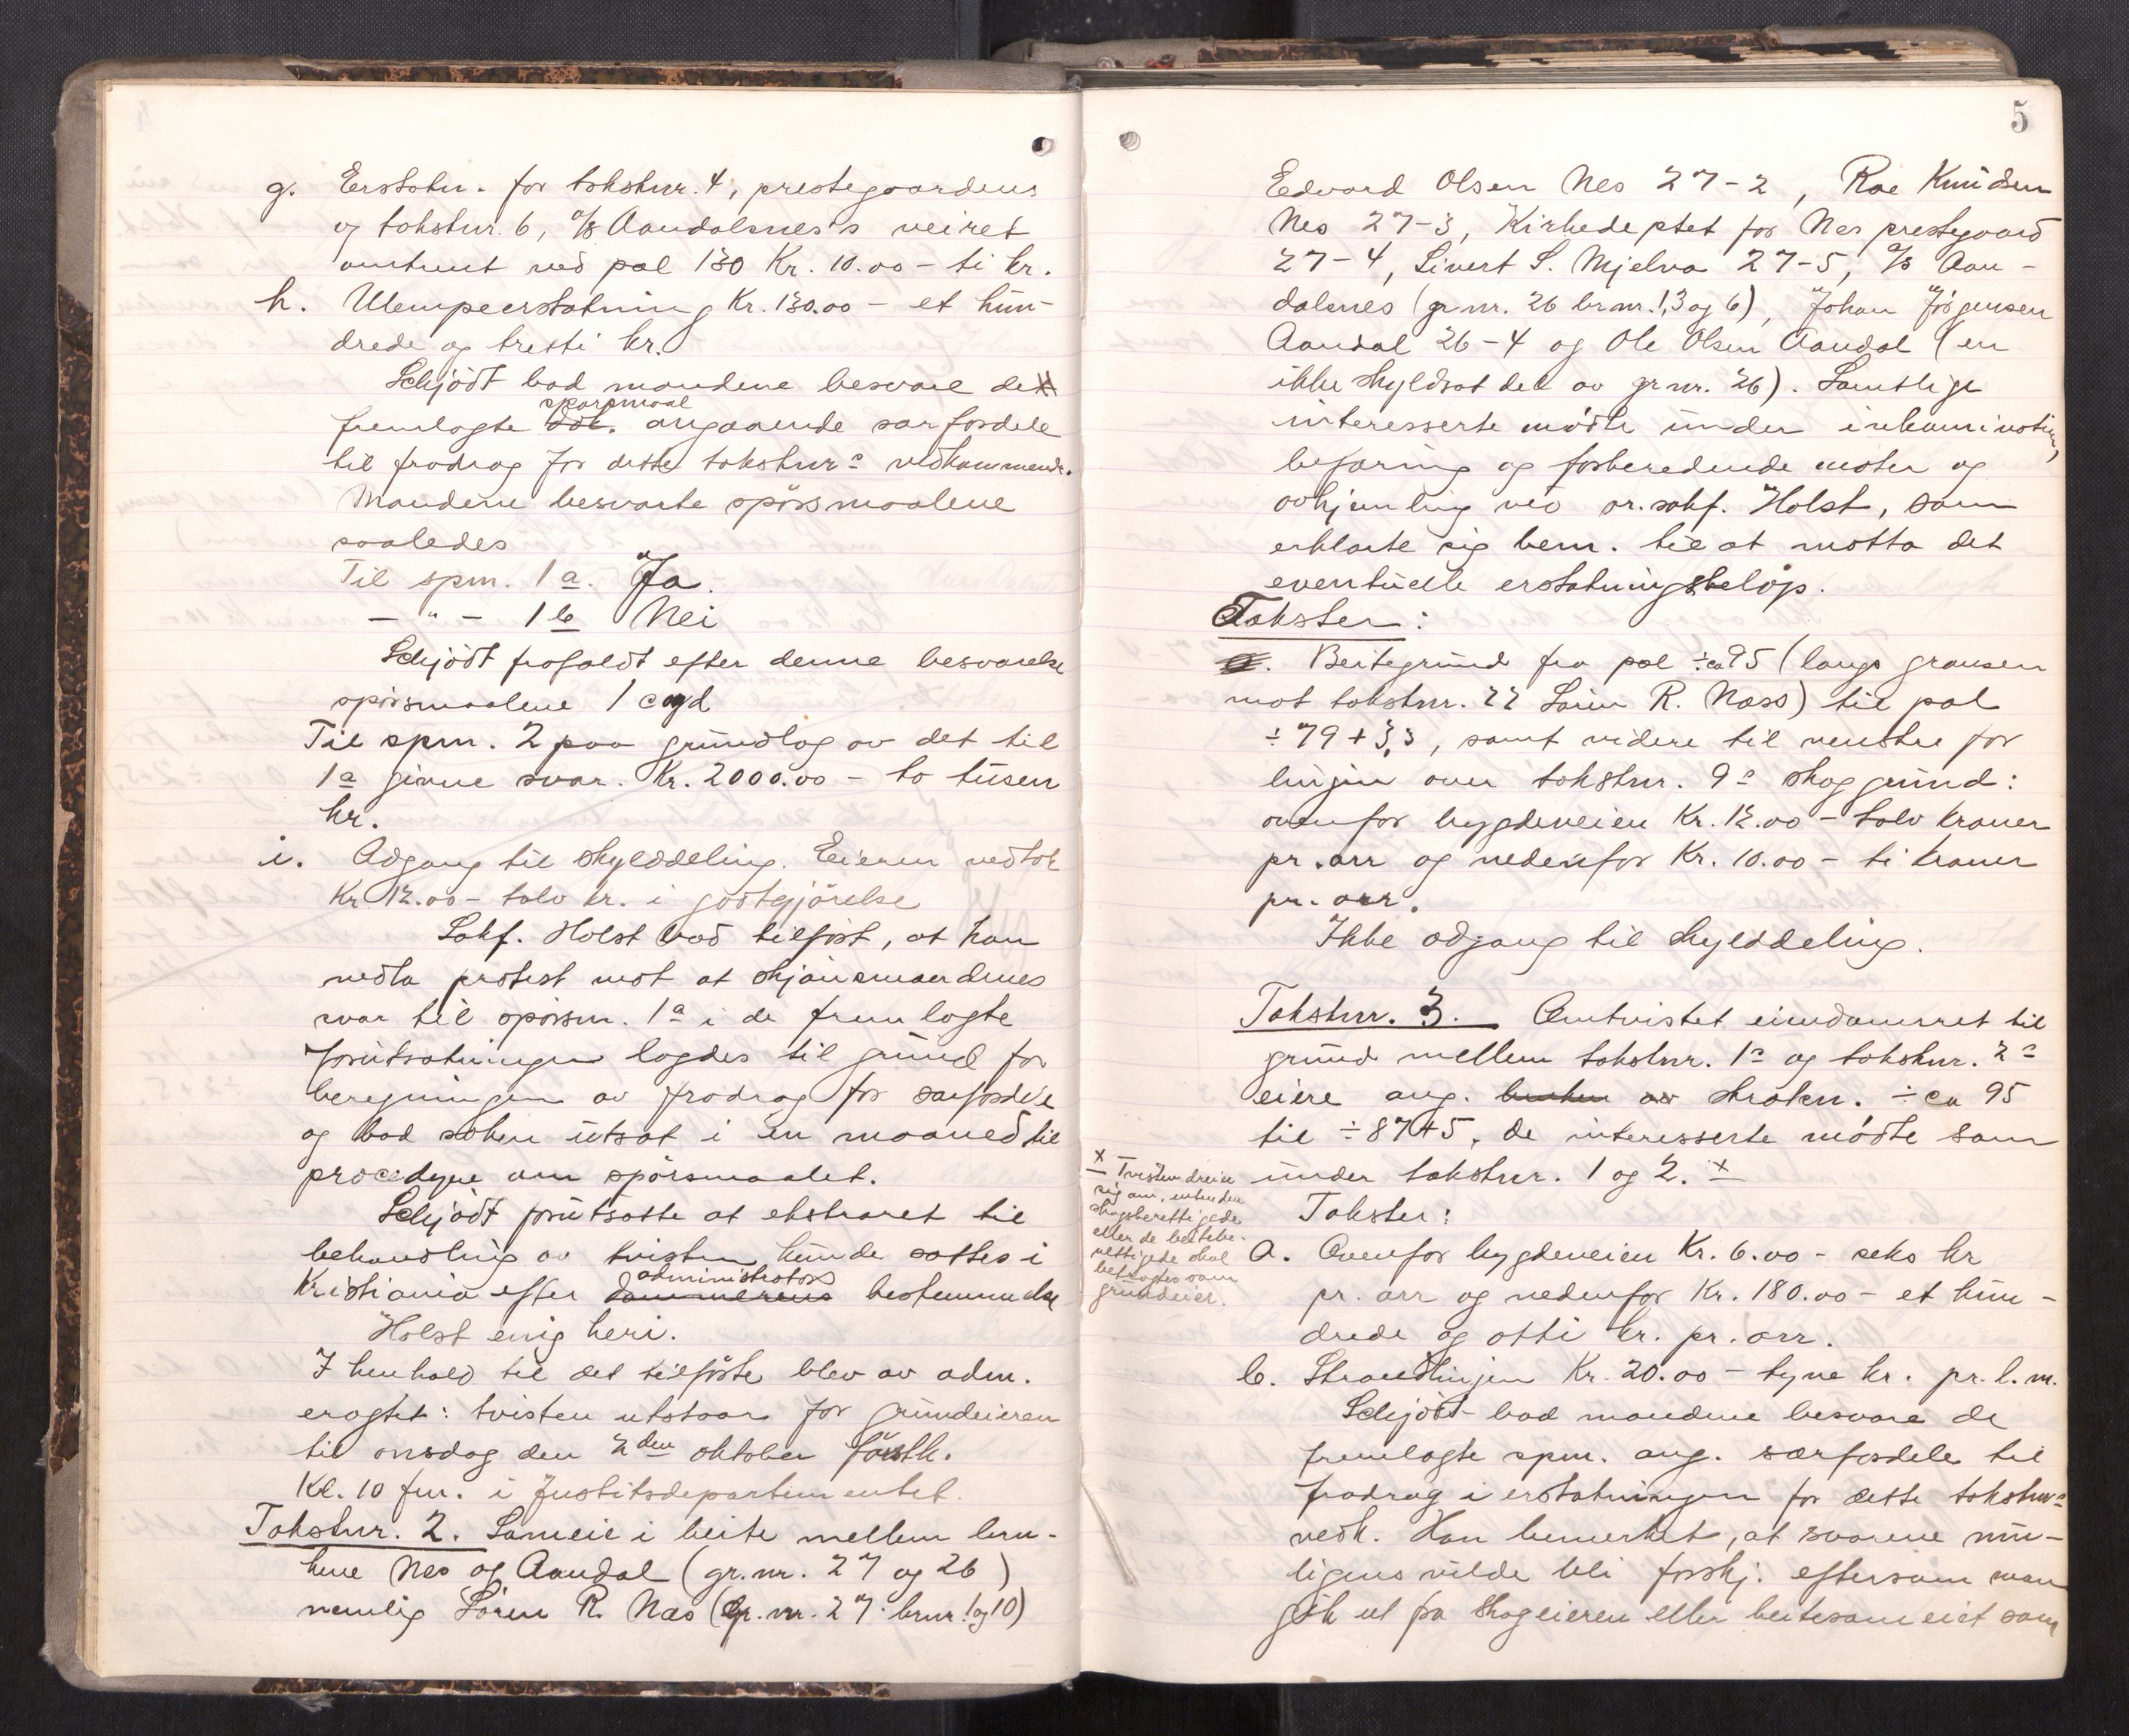 g. Erstatn. for takstnr. 4, prestegaardens
og takstnr. 6, A/S Aandalsnes's veiret
omtrent ved pal 130 Kr. 10.00 - ti kr.
h. Ulempeerstatning Kr. 130.00 - et hun-
drede og tretti kr.
Schjödt bad mændene besvare de
fremlagte spørsmaal angaaende særfordele
til fradrag for dette takstnr.s vedkommende.
Mændene besvarte spörsmaalene
saaledes
Til spm. 1a. Ja.
- " - 1b Nei
Schjödt frafaldt efter denne besvarelse
spörsmaalene 1 c og d
Til spm. 2 paa grundlag av det til
1a givne svar. Kr. 2000.00 - to tusen
kr.
i. Adgang til skylddeling. Eieren vedtok
Kr. 12.00 - tolv kr. i godtgjörelse
Sakf. Holst bad tilföst, at han
nedla protest mot at skjönsmændenes
svar til spörsm. 1a i de fremlagte
forutsætninger lægdes til grund for
beregningen av fradrag for særfordele
og bad saken utsat i en maaned til
procedyre om spörsmaalet.
Schjödt forutsatte at ekstraret til
behandling av tvisten kunde sættes i
Kristiania efter administrators bestemmelse
Holst enig heri.
I henhold til det tilförte blev av adm.
eragtet: tvisten utstaar for grundeieren
til onsdag den 2den oktober förstk.
Kl. 10 fm. i Justitsdepartementet.
Takstnr. 2. Sameie i beite mellem bru-
kene Nes og Aandal (gr.nr. 27 og 26)
nemlig Sören R. Næs (gr.nr. 27 brnr. 1 og 10)
5
Edvard Olsen Nes 27-2, Roe Knudsen
Nes 27-3, Kirkedeptet for Nes prestegaard
27-4, Sivert S. Mjelva 27-5, A/S Aan-
dalsnes (gr.nr. 26 br.nr. 1,3 og 6), Johan Jörgensen
Aandal 26-4 og Ole Olsen Aandal (en
ikke skyldsat del av gr.nr. 26). Samtlige
interesserte mödte under inkamination,
befaring og forberedende möter og
avhjemling ved or. sakf. Holst, som
erklærte sig bem. til at motta det
eventuelle erstatningsbelöp.
Takster:
Beitegrund fra pæl ÷ ca 95 (langs grænsen
mot takstnr. 22 Sören R. Næss) til pæl
÷ 79 + 3,3, samt videre til venstre for
linjen over takstnr. 9s skoggrund:
ovenfor bygdeveien Kr. 12.00 - tolv kroner
pr. arr og nedenfor Kr. 10.00 - ti kroner
pr. arr.
Ikke adgang til skylddeling.
Takstnr. 3. Omtvistet eiendomsret til
grund mellem takstnr. 1s og takstnr. 2s
eiere ang. strækn. ÷ ca 95
til ÷ 87 + 5, de interesserte mödte som
under takstnr. 1 og 2. x
x Tvisten dreier
sig om, enten den
skogsberettigede
eller de beitebe-
rettigede skal
betragtes som
grundeier.
Takster:
a. Ovenfor bygdeveien Kr. 6.00 - seks kr
pr. arr og nedenfor Kr. 180.00 - et hun-
drede og otti kr. pr. arr.
b. Strandlinjen Kr. 20.00 - tyve kr. pr. l.m.
Schjödt bad mændene besvare de
fremlagte spm. ang. særfordele til
fradrag i erstatningen for dette takstnr.s
vedk. Han bemerket, at svarene mu-
ligens vilde bli forskj. eftersom man
gik ut fra skogeieren eller beitesameiet som